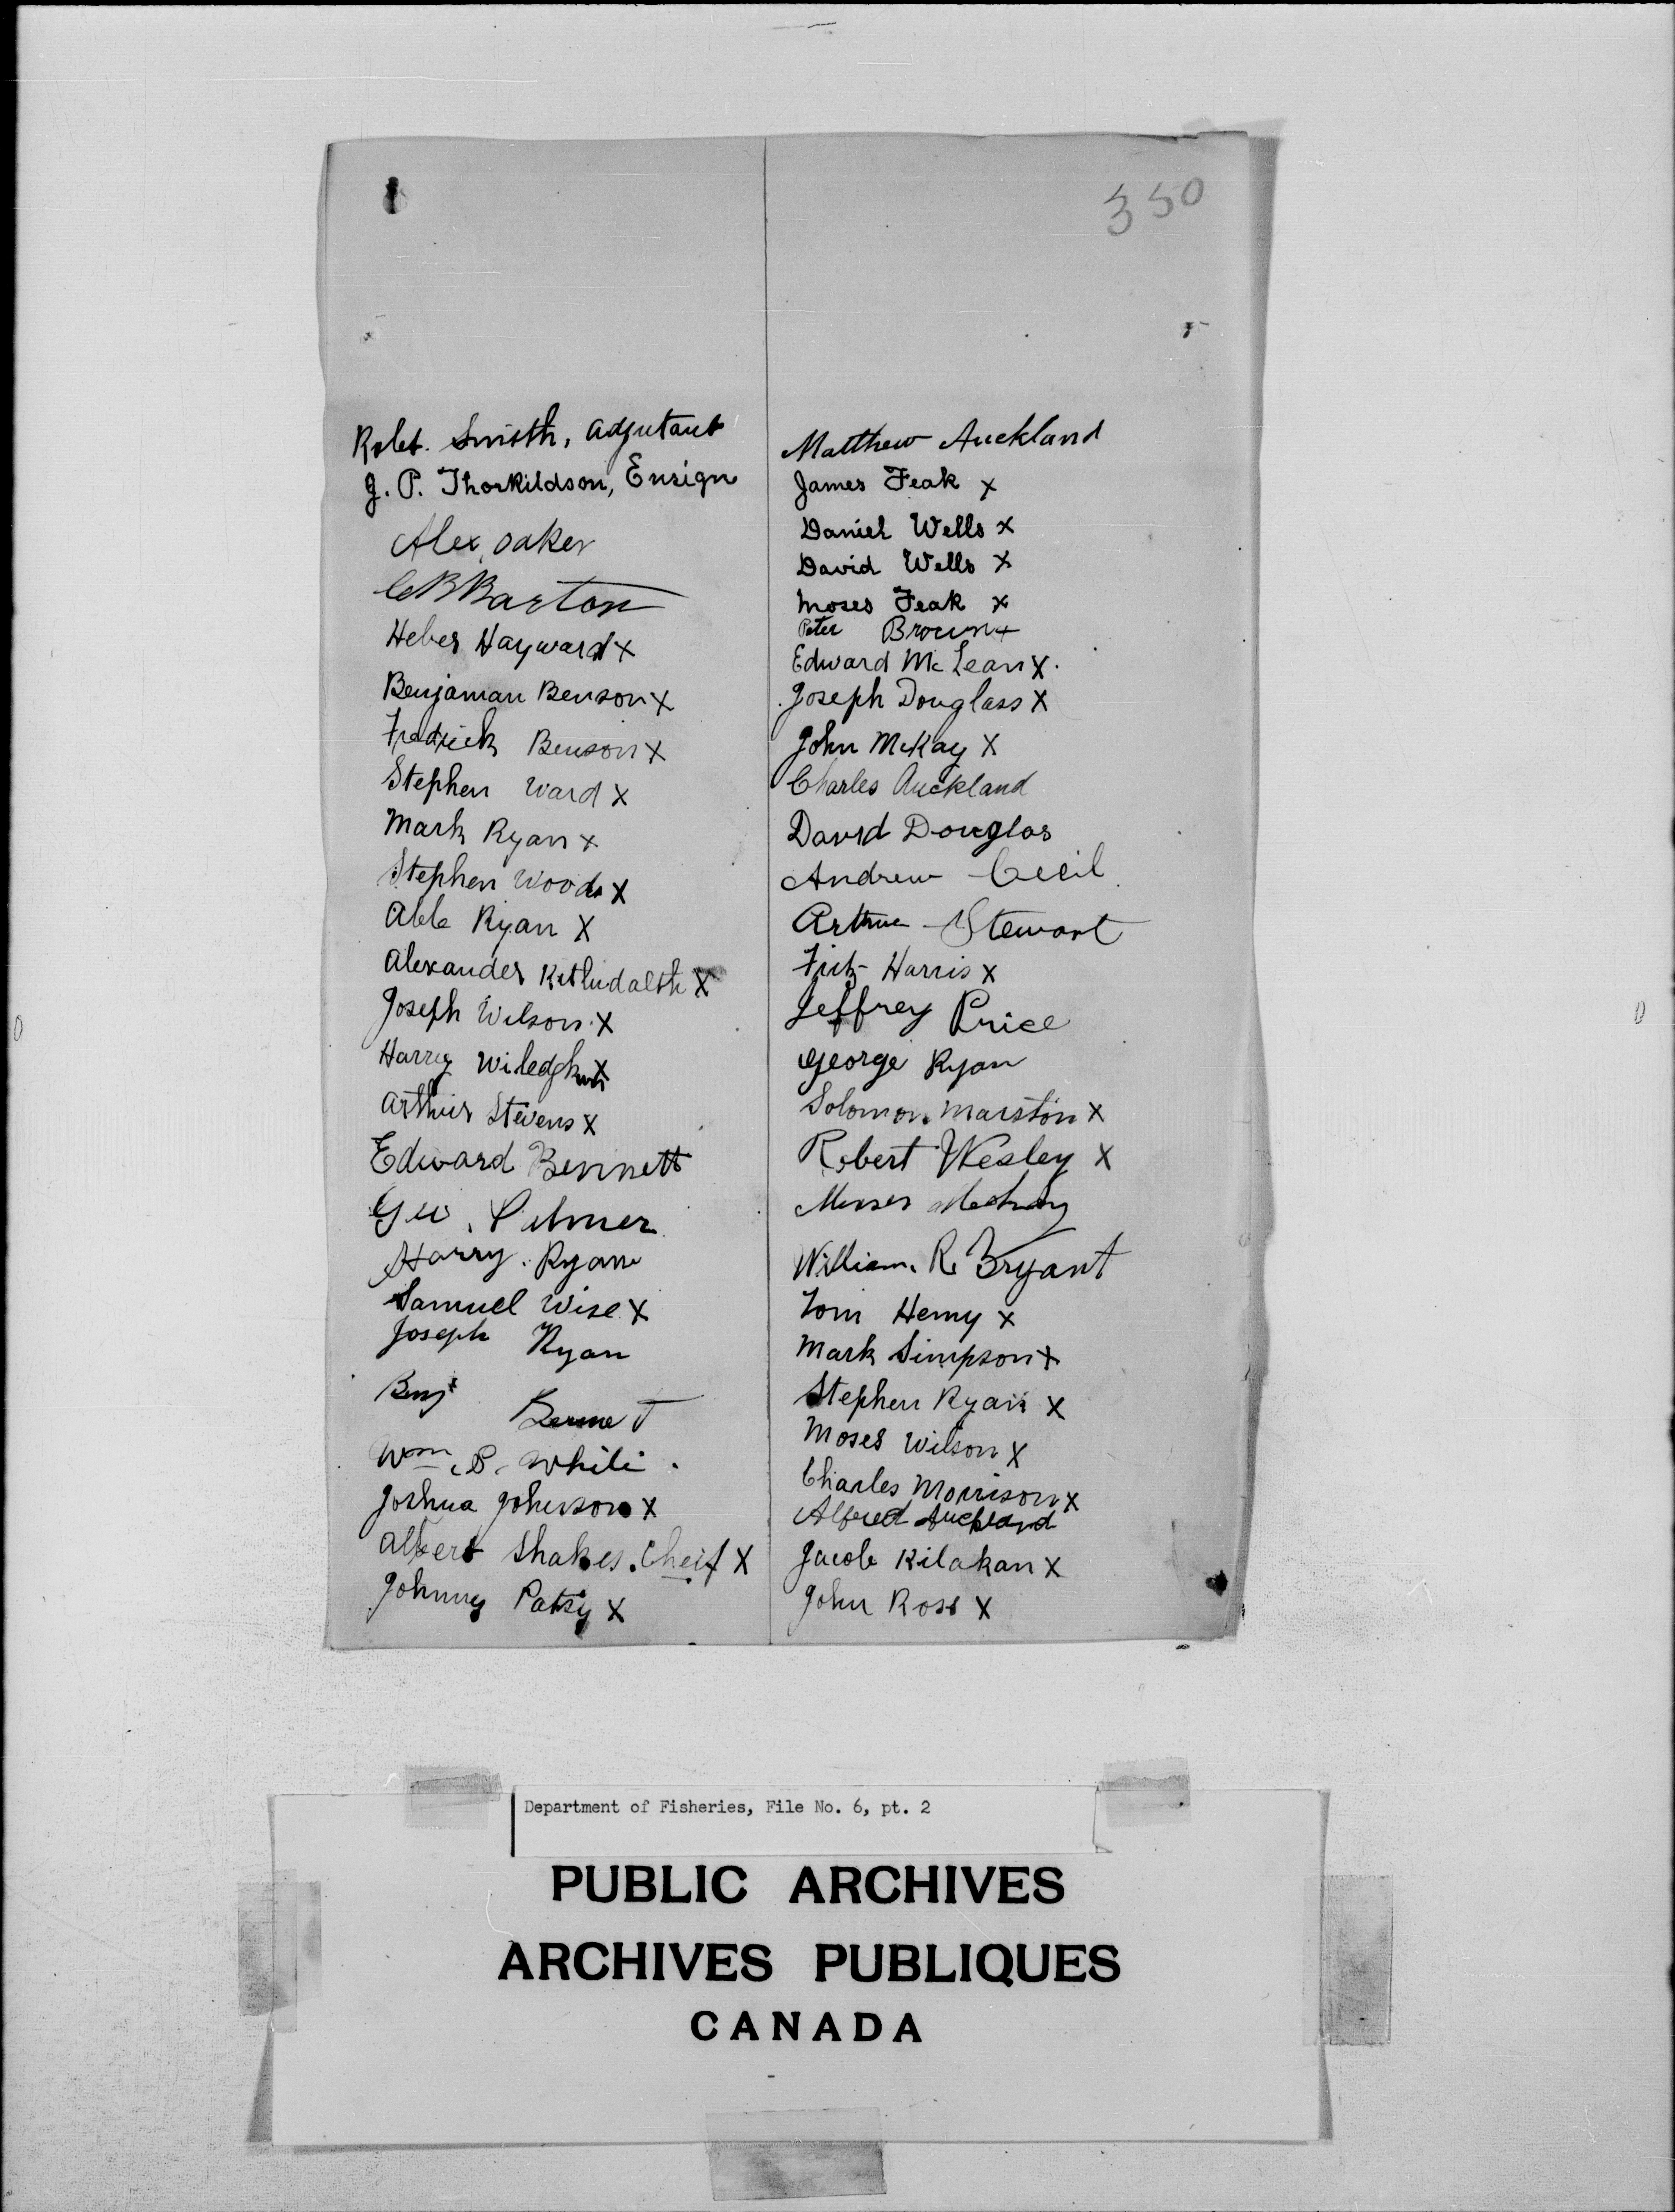 350
Robt. Smith, Adjutant
J. P. Thorkildson, Ensign
Alex. Oaker
C B Barton
Heber Hayward X
Benjaman Benson X
Fredrick Benson X
Stephen Ward X
Mark Ryan X
Stephen Woods X
Able Ryan X
Alexander X
Joseph Wilson X
Harry X
Arthur Stevens X
Edward Bennett
Geo. Pilmer
Harry Ryan
Samuel Wise X
Joseph Ryan
Benj
Wm. S. White.
Joshua Johnson X
Albert Shakes. Cheif X
Johnny Patsy X
Matthew Auckland
James Feak X
Daniel Wells X
David Wells X
Moses Feak X
Peter Brown X
Edward McLean X.
Joseph Douglass X
John McKay X
Charles Auckland
David Douglas
Andrew Cecil
Arthur Stewart
Fritz Harris X
Jeffrey Price
George Ryan
Solomon Marston X
Robert Wesley X
Moses
William. R. Bryant
Tom Henry X
Mark Simpson X
Stephen Ryan X
Moses Wilson X
Charles Morrison X
Alfred Auckland
Jacob Kilakan X
John Ross X
Department of Fisheries, File No. 6, pt. 2
PUBLIC ARCHIVES
ARCHIVES PUBLIQUES
CANADA